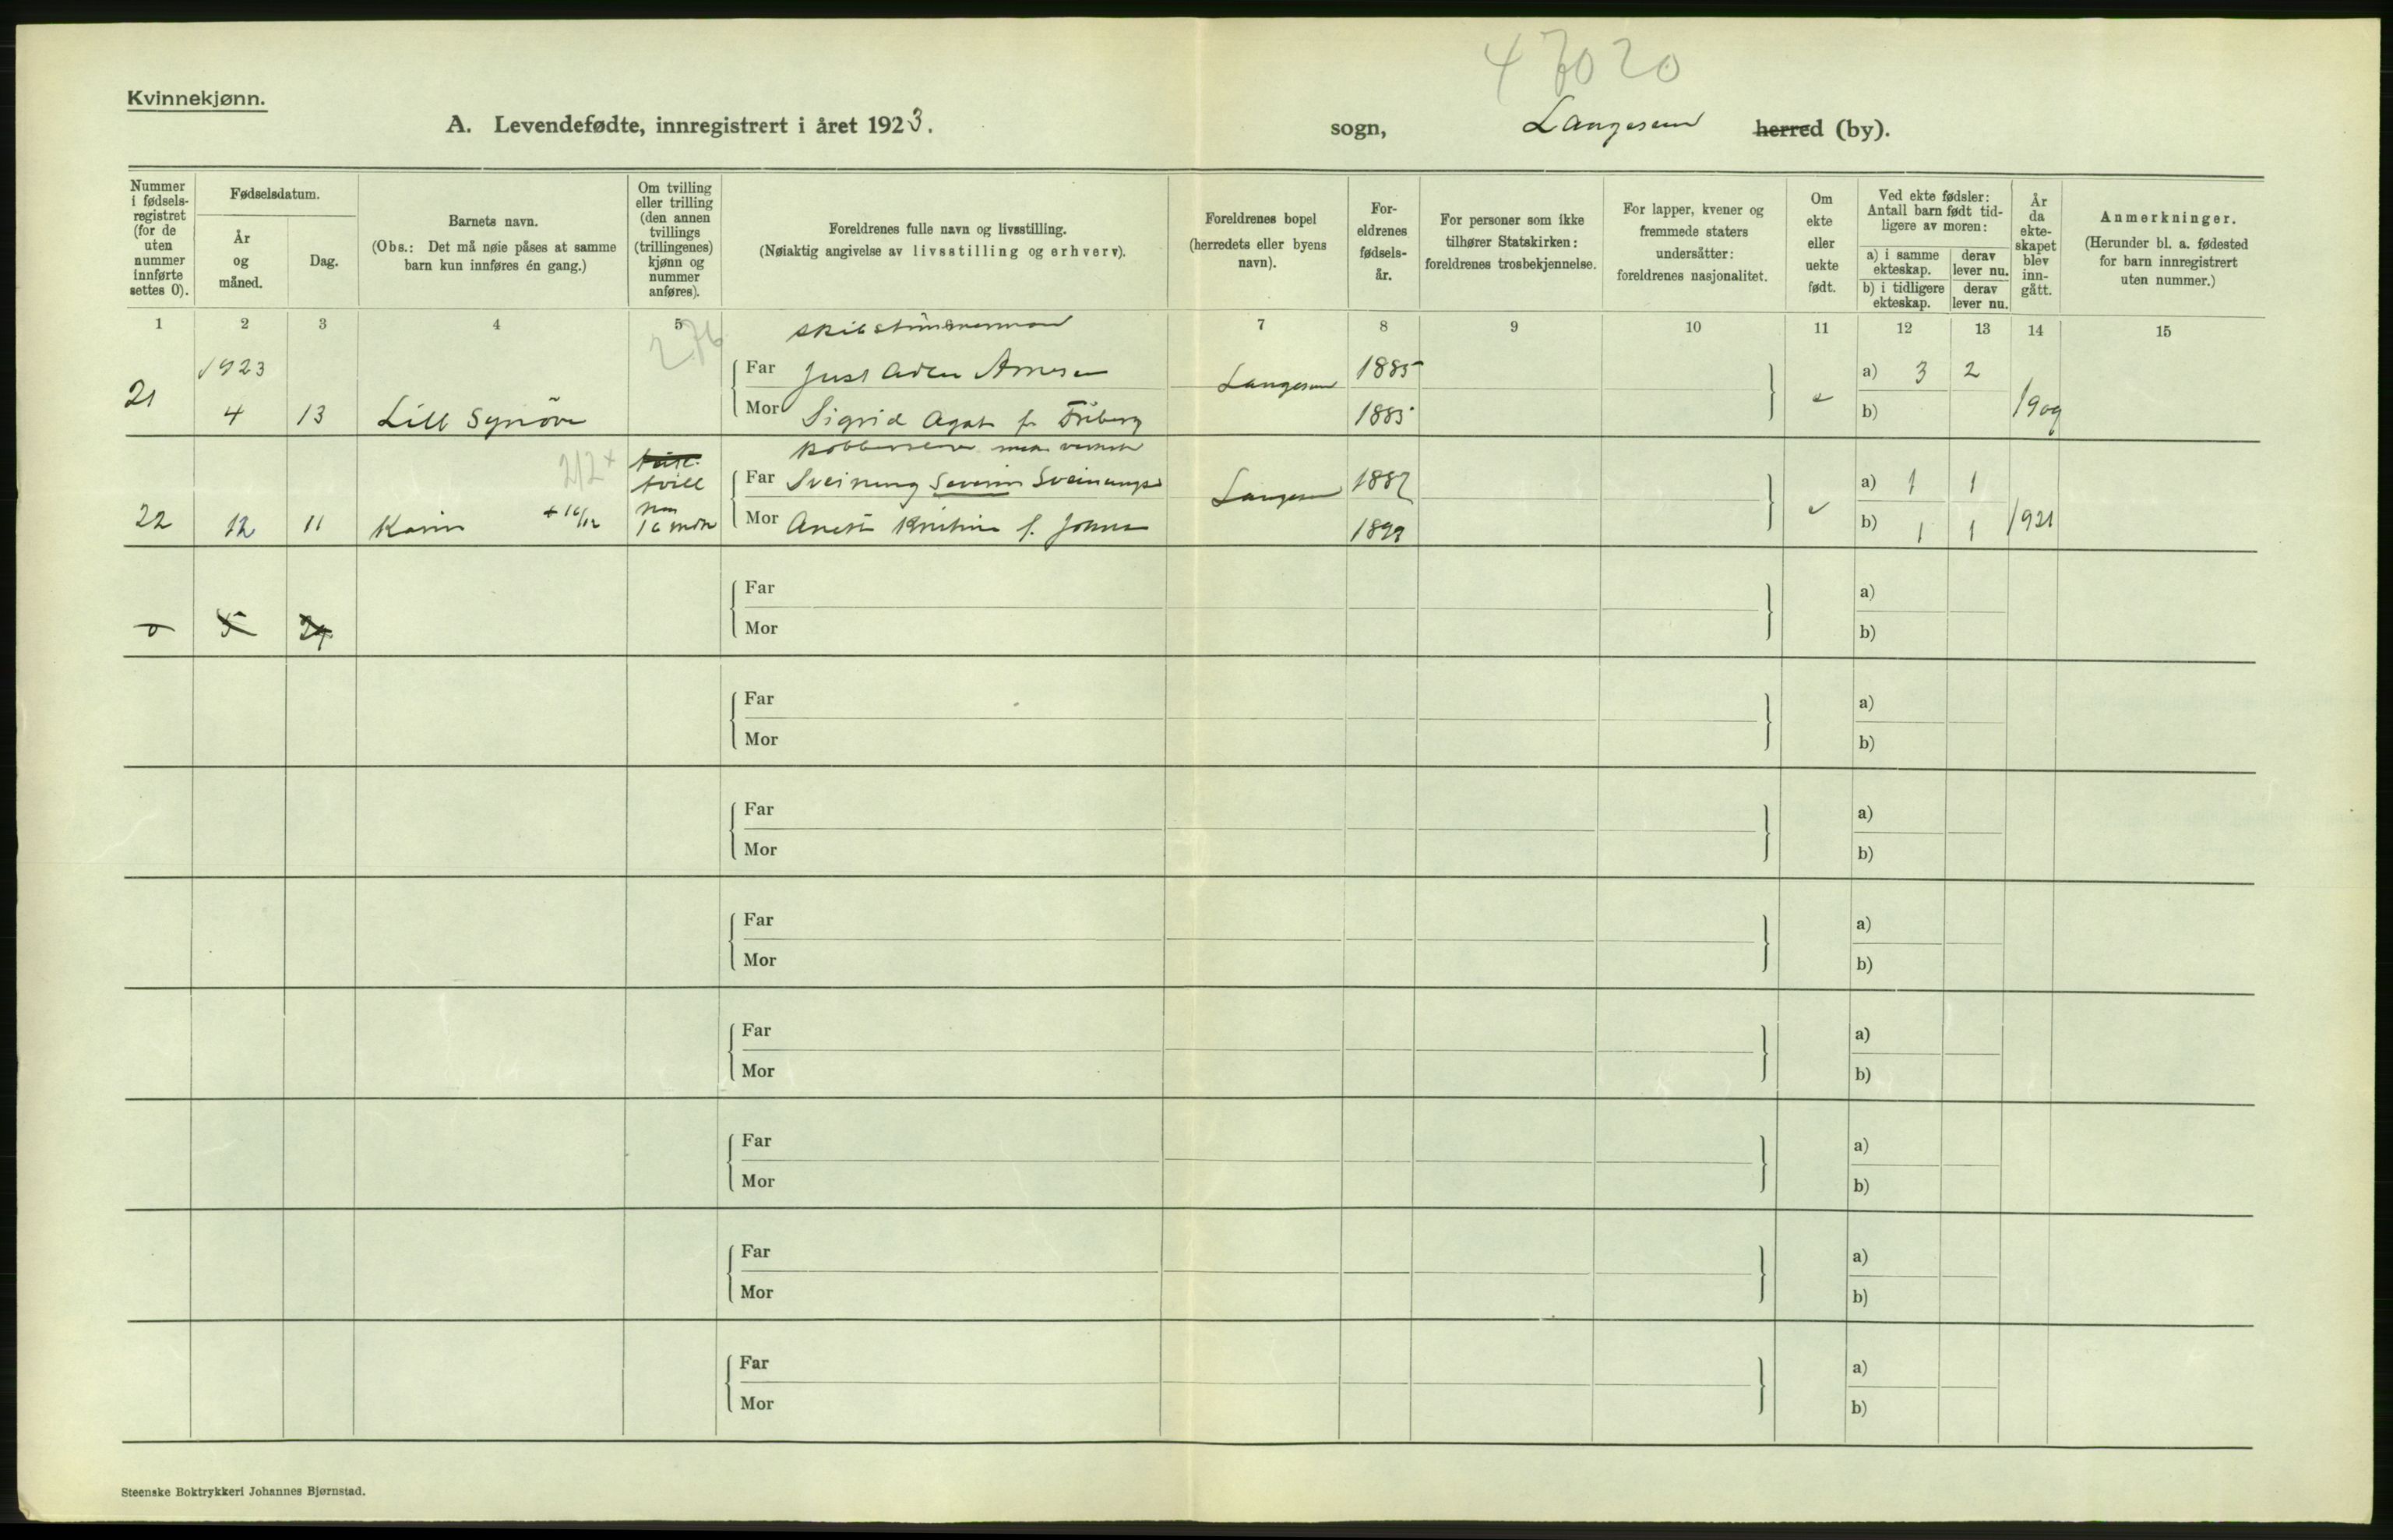 47020
Kvinnekjønn.
A. Levendefødte, innregistrert i året 1923.
sogn, Langesund herred (by).
Nummer i fødsels-registret (for de uten nummer innførte settes 0).
Fødselsdatum.
År og måned.
Dag.
Barnets navn.
(Obs.: Det må nøie påses at samme barn kun innføres én gang.)
Om tvilling eller trilling (den annen tvillings (trillingenes) kjønn og nummer anføres).
Foreldrenes fulle navn og livsstilling.
(Nøiaktig angivelse av livsstilling og erhverv).
Foreldrenes bopel (herredets eller byens navn).
For-eldrenes fødsels-år.
For personer som ikke tilhører Statskirken: foreldrenes trosbekjennelse.
For lapper, kvener og fremmede staters undersåtter: foreldrenes nasjonalitet.
Om ekte eller uekte født.
Ved ekte fødsler: Antall barn født tid-ligere av moren:
a) i samme ekteskap.
derav lever nu.
b) i tidligere ekteskap.
derav lever nu.
År da ekte-skapet blev inn-gått.
Anmerkninger.
(Herunder bl. a. fødested for barn innregistrert uten nummer.)
1 2 3 4 5 7 8 9 10 11 12 13 14 15
276
skibstømmermann
1923
Far Just Aden Arnesen 1885 a) 3 2
21 4 13 Lill Synöve Mor Sigrid Agat f. Friberg Langesund 1885 e b) 1909
212 x
tvill
Far Sveinung Severin Langesund 1887 a) 1 1
22 12 11 Karin + 16/12 16 Mor Kristine f. e b) 1 1 1921
0 5 29
Far a)
Mor b)
Far a)
Mor b)
Far a)
Mor b)
Far a)
Mor b)
Far a)
Mor b)
Far a)
Mor b)
Far a)
Mor b)
Far a)
Mor b)
Steenske Boktrykkeri Johannes Bjørnstad.